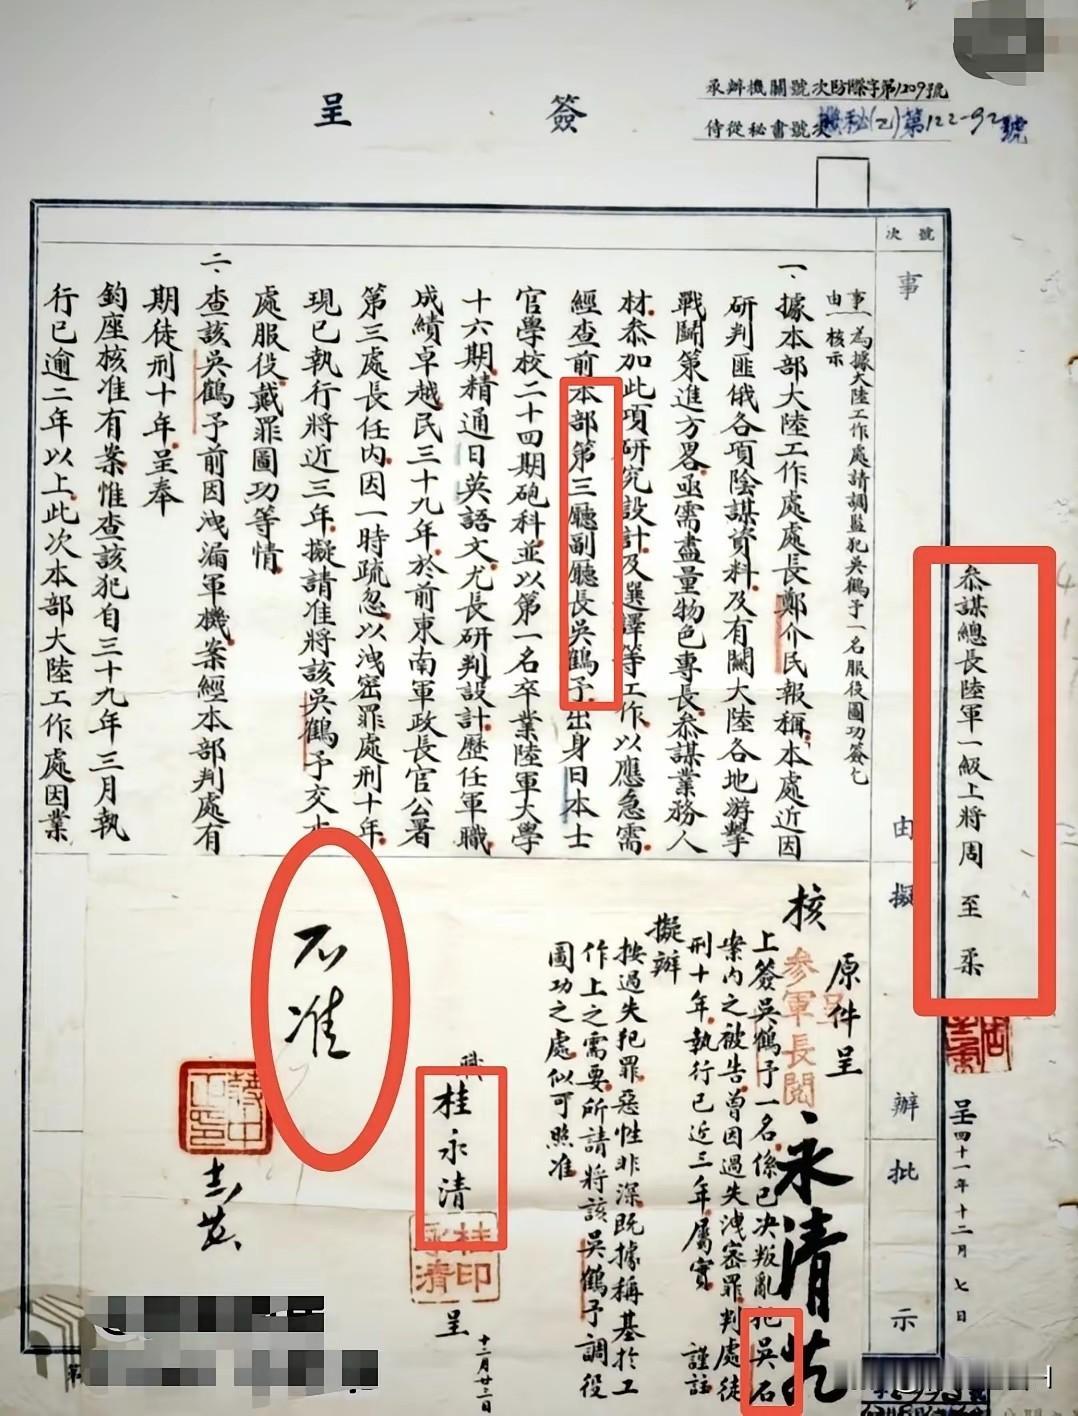 簽呈
承辦機關號次防際字第1209號
侍從秘書號次機秘(乙)第122-92號
號次
事由
擬辦
批示
參謀總長陸軍一級上將周至柔
呈四十一年十二月七日
事由
一為據大陸工作處請調監犯吳鶴予一名服役圖功簽乞
核示
一、據本部大陸工作處處長鄭介民報稱本處近因
研判匪俄各項陰謀資料及有關大陸各地游擊
戰鬪策進方畧亟需盡量物色專長參謀業務人
材參加此項研究設計及選譯等工作以應急需
經查前本部第三廳副廳長吳鶴予出身日本士
官學校二十四期砲科並以第一名卒業陸軍大學
十六期精通日英語文尤長研判設計歷任軍職
成績卓越民三十九年於前東南軍政長官公署
第三處長任內因一時疏忽以洩密罪處刑十年
現已執行將近三年擬請准將該吳鶴予交本
處服役戴罪圖功等情
二、查該吳鶴予前因洩漏軍機案經本部判處有
期徒刑十年呈奉
鈞座核准有案惟查該犯自三十九年三月執
行已逾二年以上此次本部大陸工作處因業
原件呈
參軍長閱
永清
核
上簽吳鶴予一名係已決叛亂犯吳石
案內之被告曾因過失洩密罪判處徒
刑十年執行已近三年屬實
謹註
擬辦
按過失犯罪惡性非深既據稱基於工
作上之需要所請將該吳鶴予調役
圖功之處似可照准
職桂永清呈
桂永清印
十二月廿三日
不准
蔣中正印